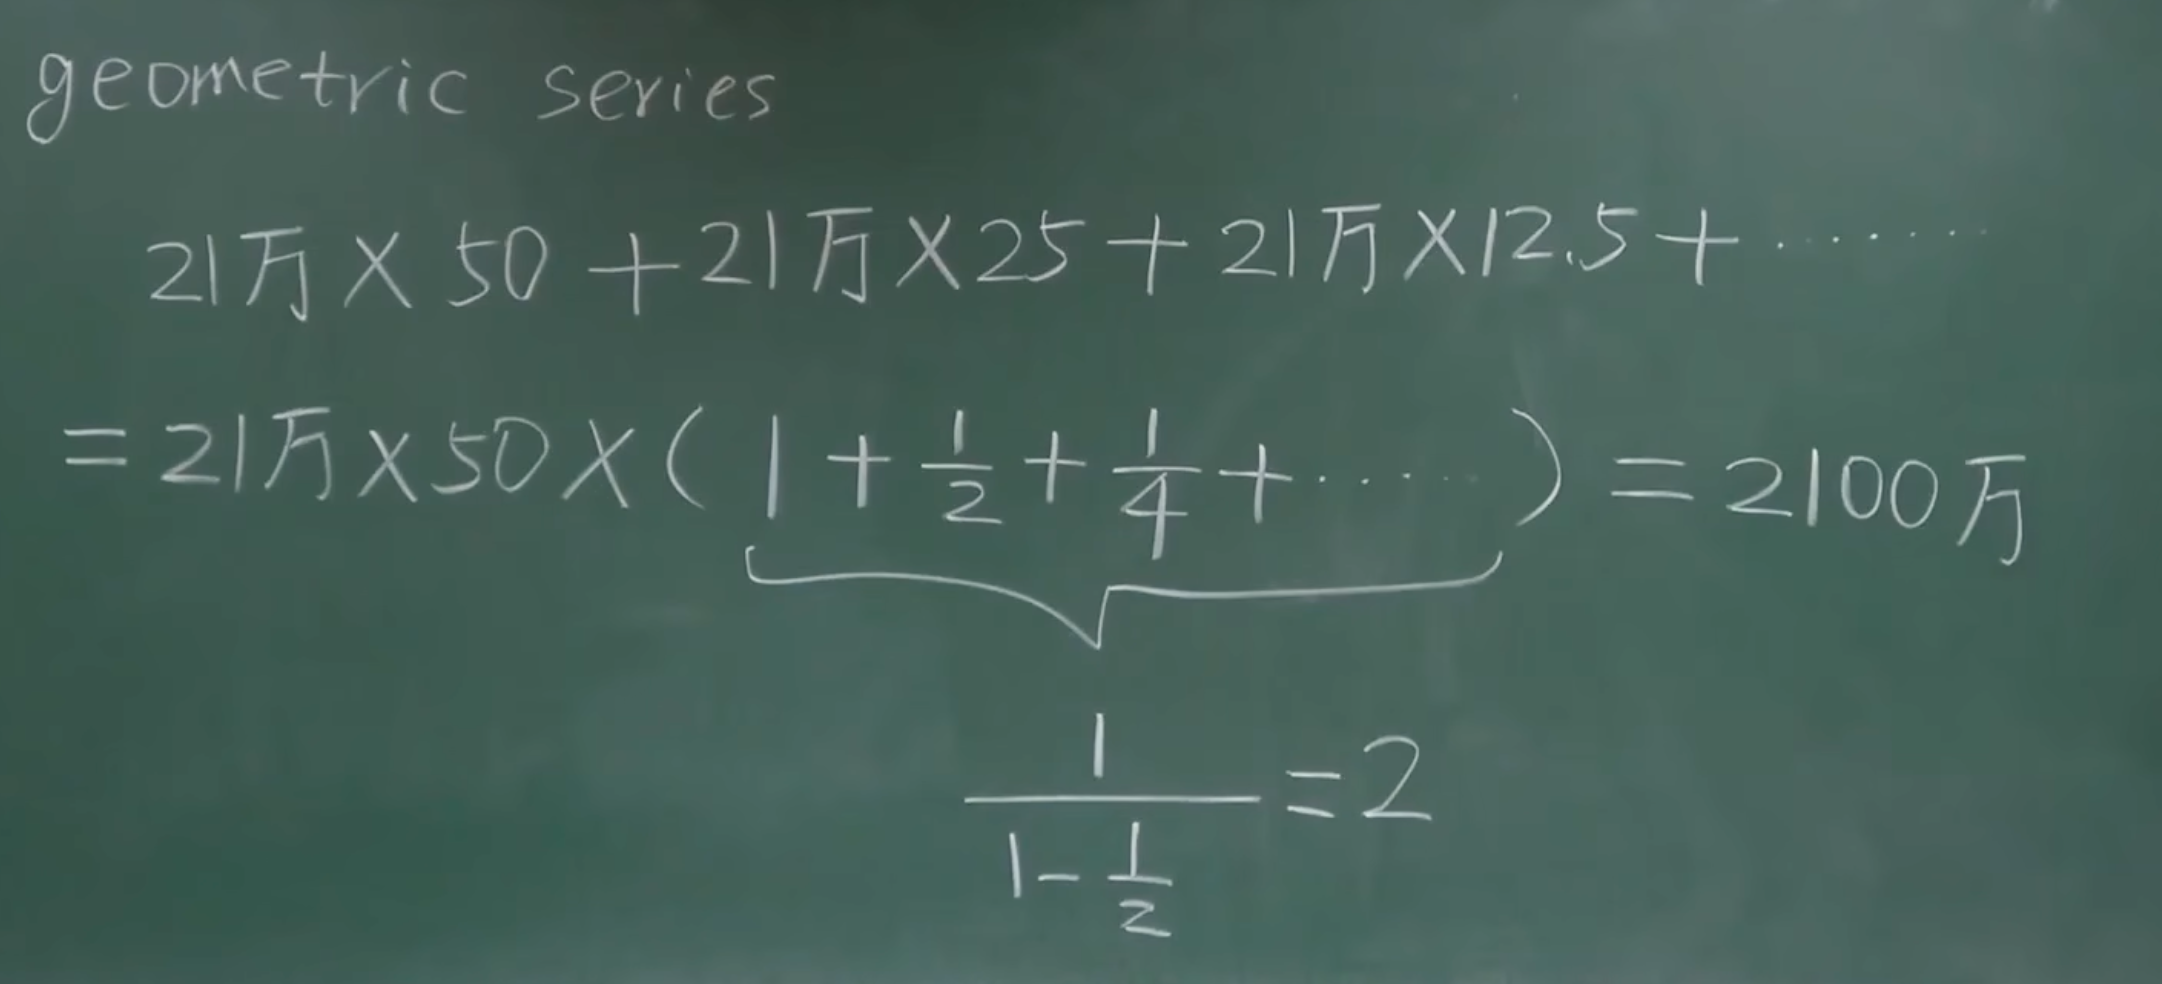 geometric series
21万×50+21万×25+21万×12.5+·······
=21万×50×(1+1/2+1/4+·····)=2100万
1/(1-1/2)=2